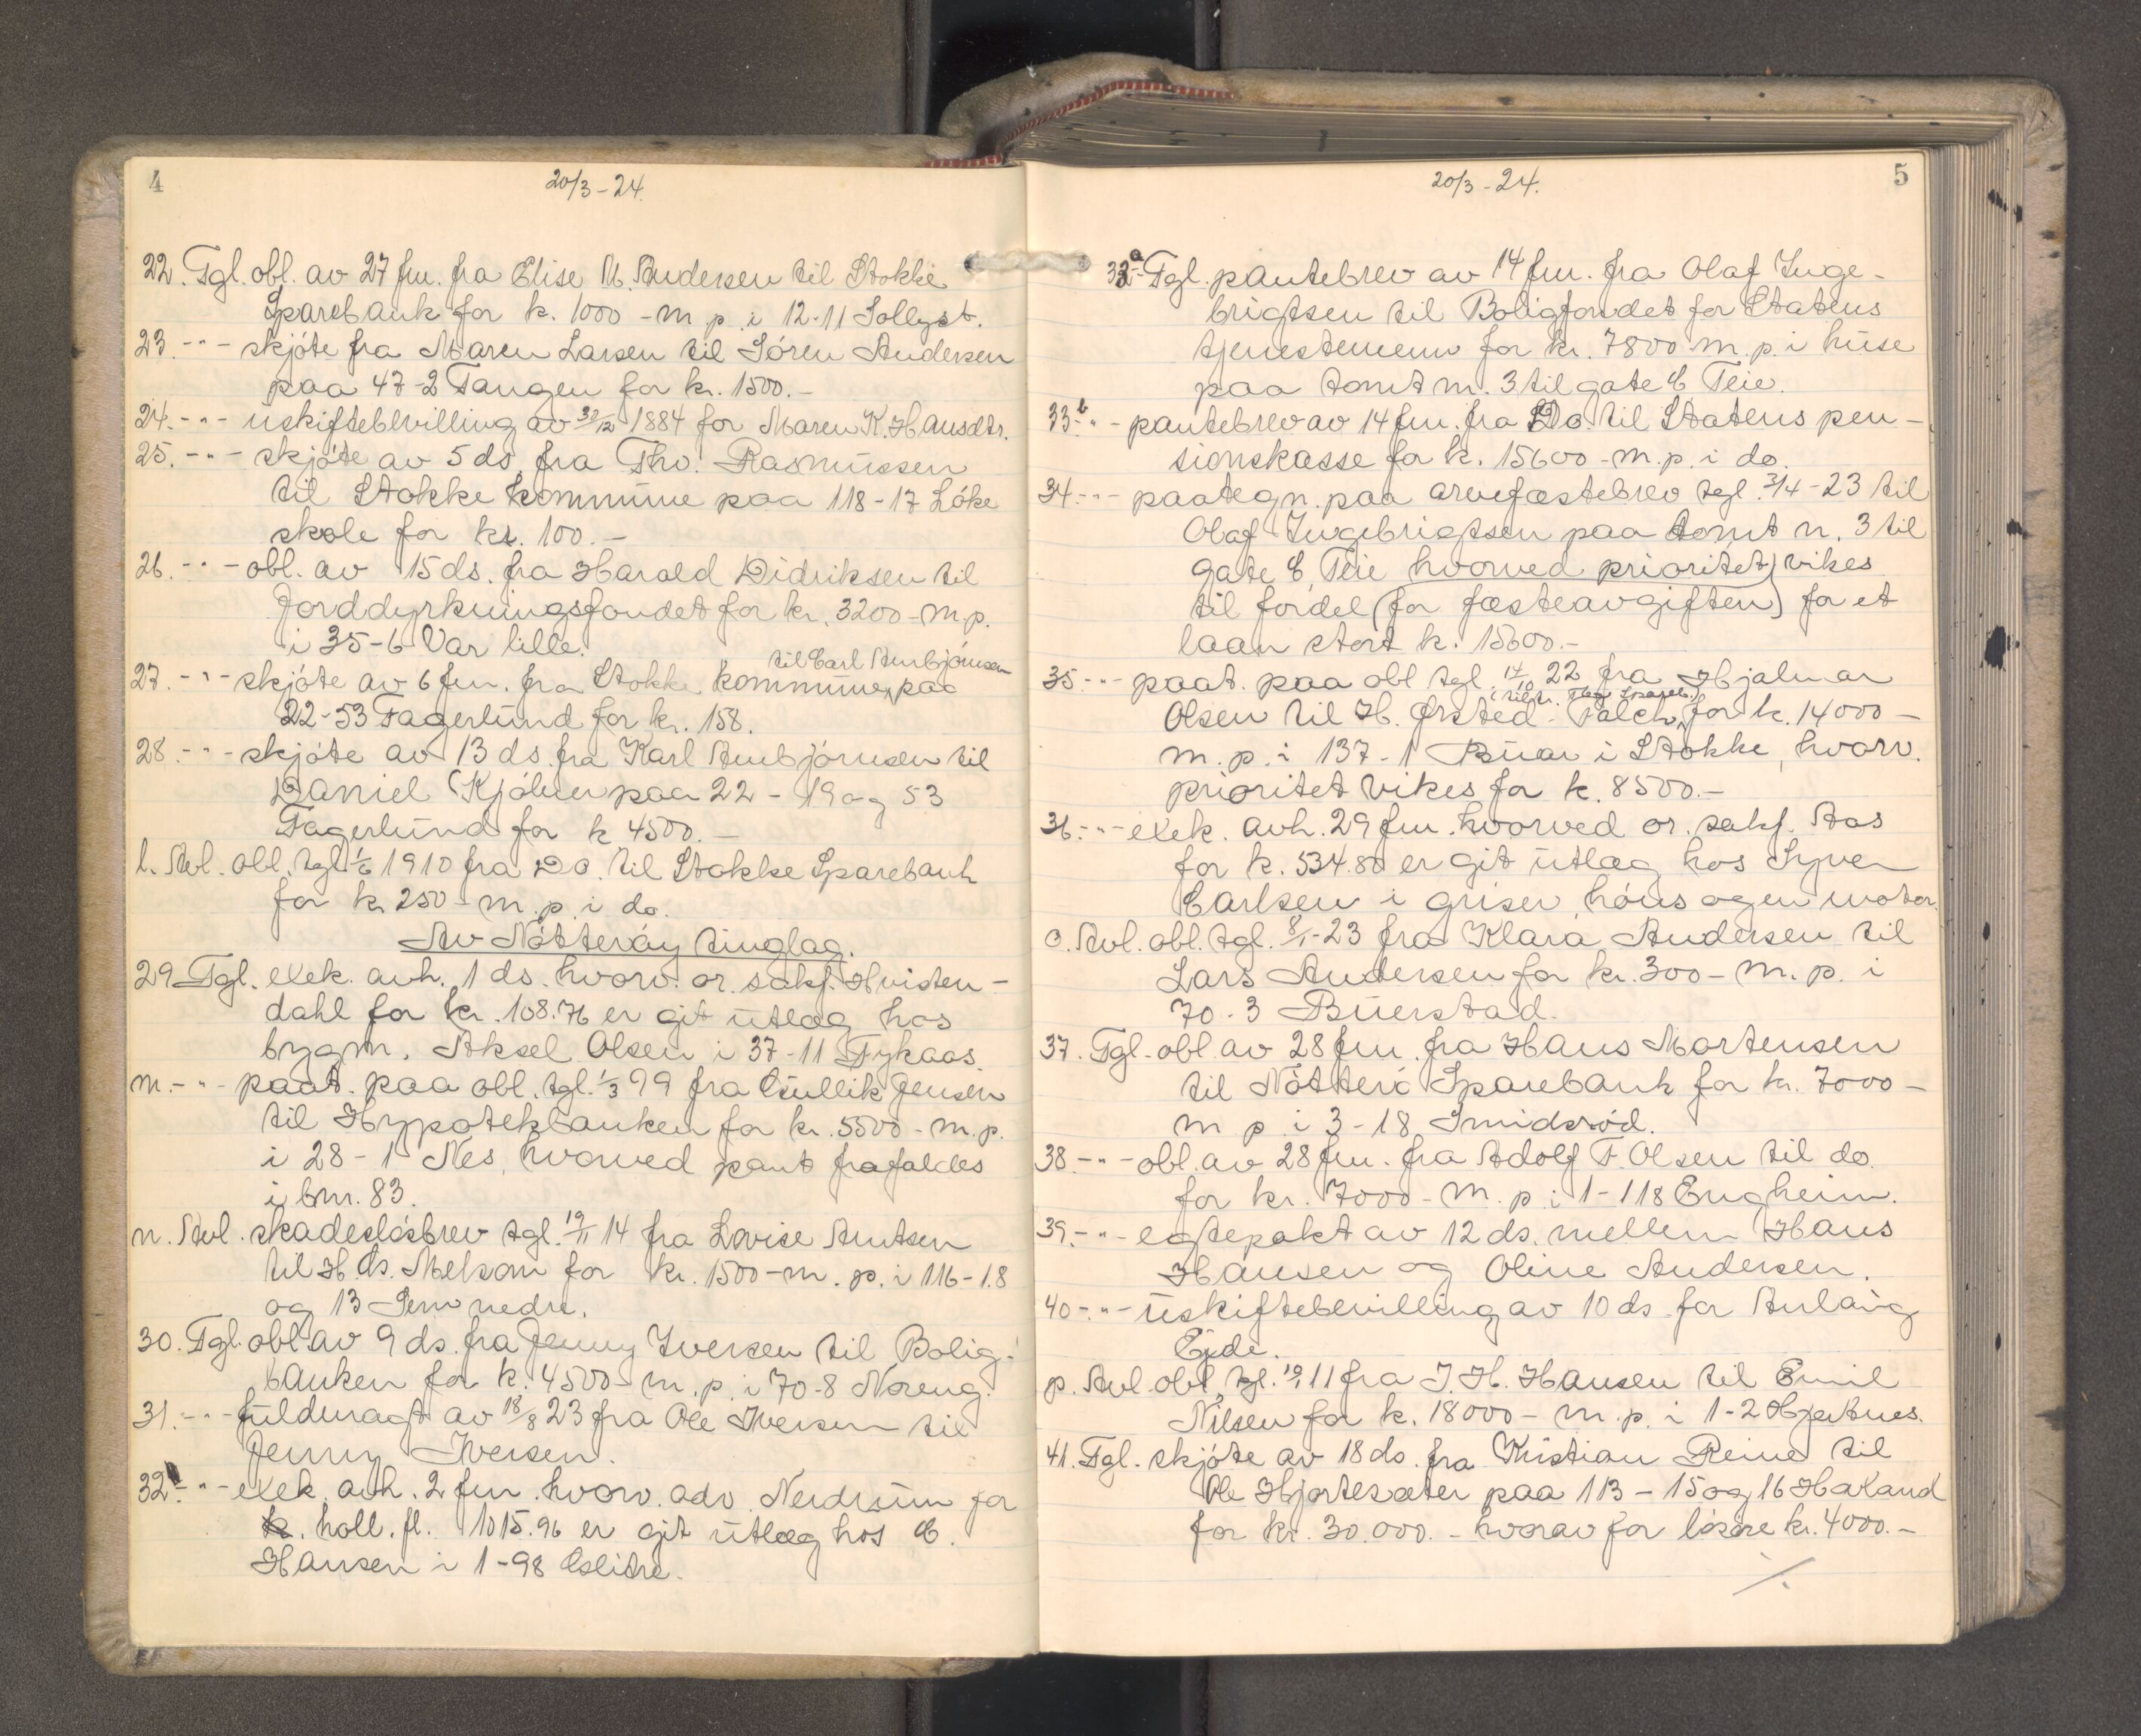 4
20/3-24.
22. Tgl. obl. av 27 fm. fra Elise M. Andersen til Stokke
Sparebank for k. 1000 - m. p. i 12-11 Sollyst.
23. -"- skjöte fra Maren Larsen til Sören Andersen
paa 47-2 Tangen for kr. 1500.-
24. -"- uskiftebevilling av 30/12 1884 for Maren K. Hansdtr.
25. -"- skjöte av 5 ds. fra Tho. Rasmussen
til Stokke kommune paa 118-17 Löke
skole for kr. 100.-
26. -"- obl. av 15 ds. fra Harald Didriksen til
Jorddyrkningsfondet for kr. 3200 - m.p.
i 35-6 Var lille.
til Carl Arnbjörnsen
27. -"- skjöte av 6 fm. fra Stokke kommune, paa
22-53 Fagerlund for kr. 158.
28. -"- skjöte av 13 ds. fra Karl Arnbjörnsen til
Daniel Kjölner paa 22 - 19 og 53
Fagerlund for k 4500.-
l. Avl. obl. tgl. 1/6 1910 fra Do. til Stokke Sparebank
for k 250 - m. p. i do.
Av Nötteröy tinglag.
29 Tgl. exek. avh. 1 ds. hvorv. or. sakf. Hvisten-
dahl for kr. 108.76 er git utlæg hos
bygm. Aksel Olsen i 37-11 Fykaas.
m. -"- paat. paa obl. tgl. 1/3 99 fra Gullik Jensen
til Hypotekbanken for kr. 5500 - m. p.
i 28-1 Nes, hvorved pant frafaldes
i bnr. 83.
n. Avl. skadeslösbrev tgl. 19/11 14 fra Lovise Arntsen
til H. A. Melsom for kr. 1500 - m. p. i 116-1.8
og 13 Sem nedre.
30. Tgl. obl. av 9 ds. fra Jenny Iversen til Bolig-
banken for k. 4500 - m. p. i 70-8 Noreng.
31. -"- fuldmagt av 18/8 23 fra Ole Iversen til
Jenny Iversen.
32. -"- exek. avh. 2 fm. hvorv. adv. Nerdrum for
k. holl. fl. 1015.96 er git utlæg hos C.
Hansen i 1-98 Solitre.
20/3-24.
5
33a- Tgl. pantebrev av 14 fm. fra Olaf Inge-
brigtsen til Boligfondet for Statens
tjenestemenn for kr. 7800 - m. p. i huse
paa tomt nr. 3 til gate C Teie.
33b -"- pantebrev av 14 fm. fra Do. til Statens pen-
sionskasse for k. 15600 - m. p. i do.
34 -"- paategn. paa arvefæstebrev tgl. 3/4-23 til
Olaf Ingebrigtsen paa tomt n. 3 til
gate C, Teie hvorved prioritet, vikes
til fordel (for fæsteavgiften) for et
laan stort k. 15600.-
35. -"- paat. paa obl tgl. 14/10 22 fra Hjalmar
Olsen til H. Ørsted Falch, for k. 14000 -
m. p. i 137-1 Buar i Stokke, hvorv.
prioritet vikes for k. 8500.-
36. -"- exek. avh. 29 fm. hvorved or. sakf. Aas
for k. 534.80 er git utlæg hos Syver
Carlsen i griser, höns og en motor.
o. Avl. obl. tgl. 8/1-23 fra Klara Andersen til
Lars Andersen for kr. 300 - m. p. i
70-3 Buerstad.
37. Tgl. obl. av 28 fm. fra Hans Mortensen
til Nötterö Sparebank for kr. 7000 -
m. p. i 3-18 Smidsröd.
38. -"- obl. av 28 fm. fra Adolf F. Olsen til do.
for kr. 7000 - m. p. i 1-118 Engheim.
39. -"- egtepakt av 12 ds. mellem Hans
Hansen og Oline Andersen.
40 -"- uskiftebevilling av 10 ds for Anlaug
Eide.
p. Avl. obl. tgl. 19/1 11 fra J. H. Hansen til Emil
Nilsen for k. 18000 - m. p. i 1-2 Hjertnes.
41. Tgl. skjöte av 18 ds. fra Kristian Reine til
Ole Hjortesæter paa 113 - 15 og 16 Haxand
for kr. 30.000. - hvorav for lösöre kr. 4000.-